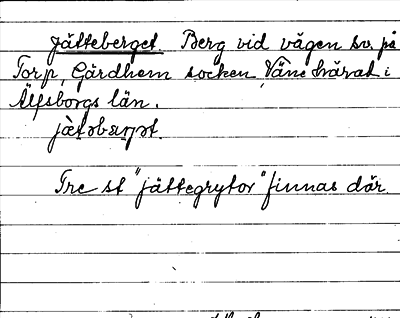 Jätteberget. Berg vid vägen sv. på
Torp, Gärdhem socken, Väne härad i
Älfsborgs län.
jät
Tre st "jättegrytor" finnas där.